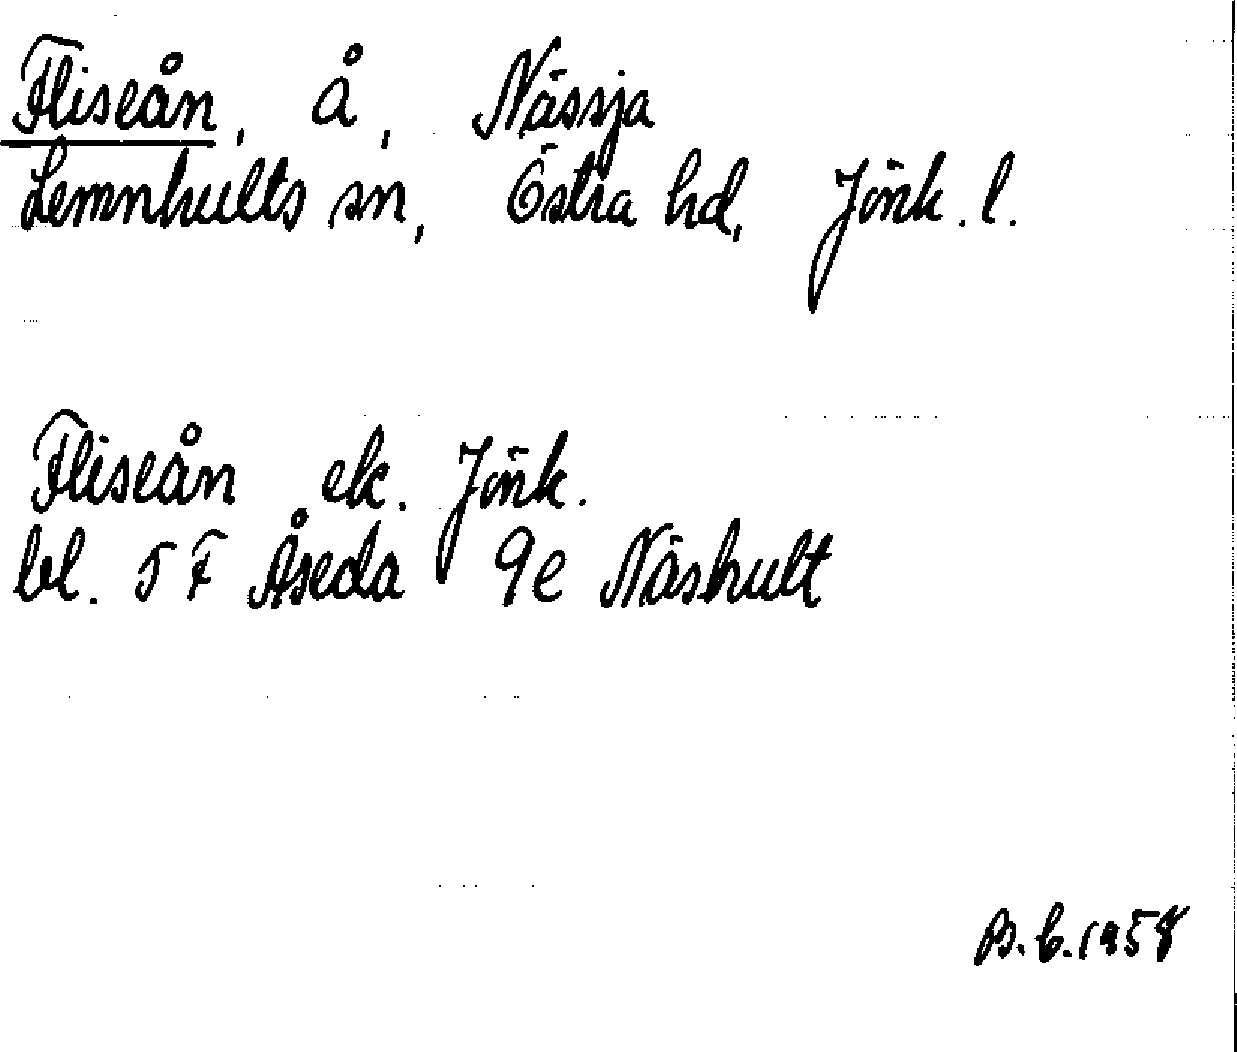 Fliseån, å, Nässja
Lemnhults sn, Östra hd, Jönk. l.
Fliseån ek. Jönk.
bl. 5 F Åseda 9e Näshult
B.C. 1958